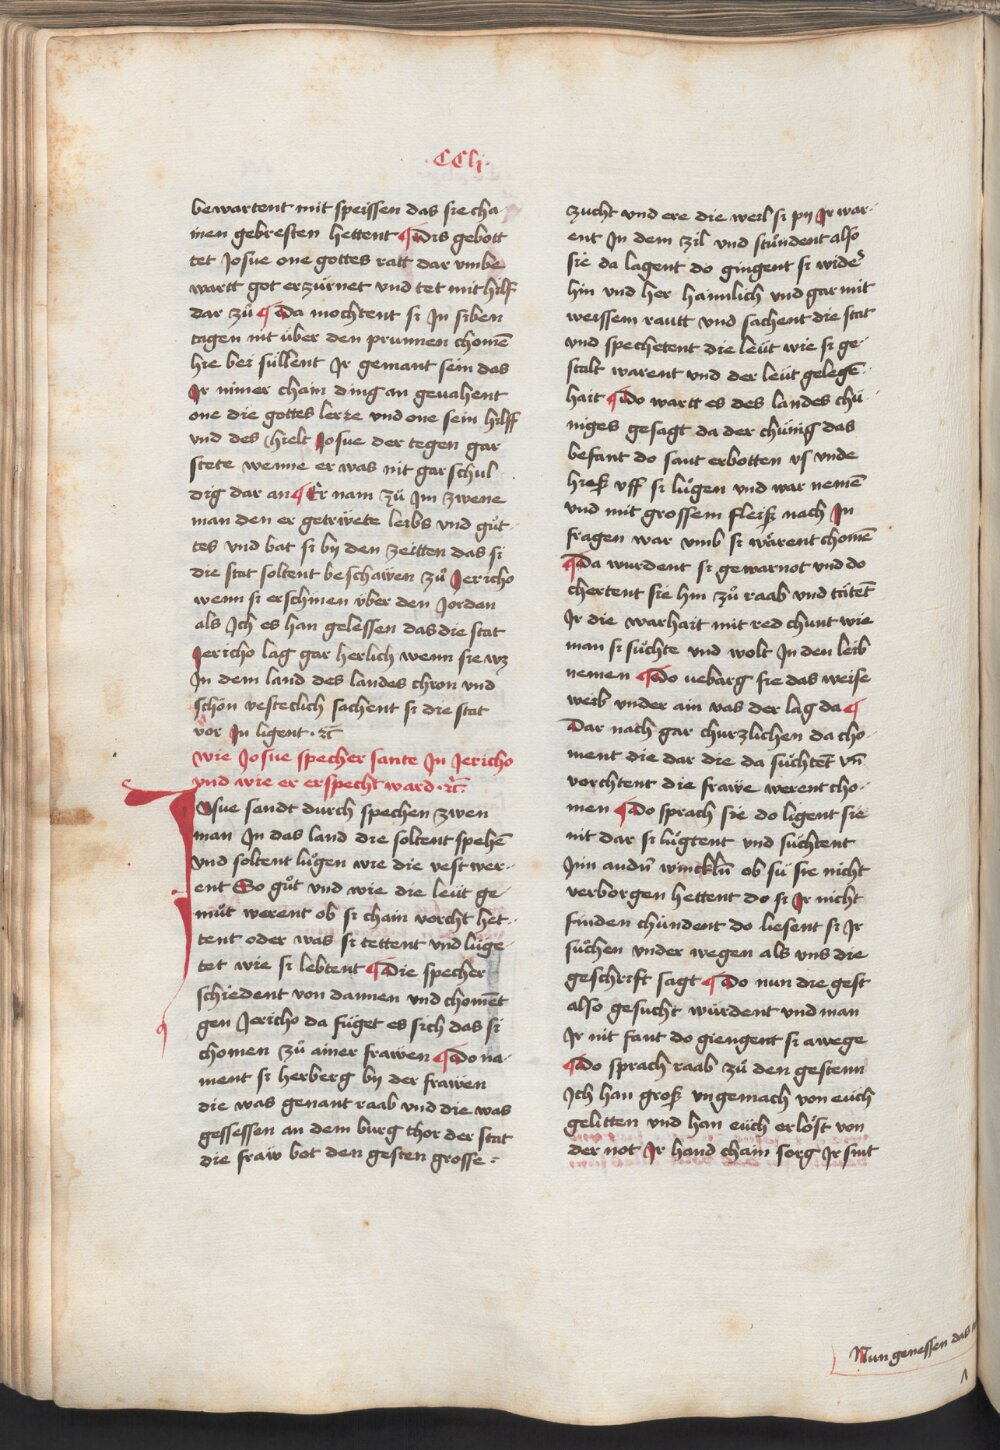 ·CClj·
bewartent mit speissen das sie cha-
inen gebresten hettent ¶ Dis gebott
tet Josue one gottes ratt dar vmbe
wartt got erzürnet und tet mit hilf
dar zů ¶ Da mochtent si In siben
tagen nit über den prunnen chomē
hie bei süllent Jr gemant sein das
Jr nimer chain ding an geuahent
one die gottes lerre vnd one sein hilff
vnd des hielt Josue der tegen gar
stete wenne er was nit gar schul
dig dar an ¶ Er nam zů Jm zwene
man den er getrüwete leibs vnd gůt-
tes vnd bat si bÿ den zeitten das si
die stat soltent beschaẅen zů Jericho
wenn si erschinen vber den Jordan
als Jch es han gelessen das die stat
Jericho lag gar herlich wenn sie wz
Jn dem land des landes chron vnd
schön vesteclich sachent si die stat
vor Jn ligent · ꝛc̄
wie Josue specher sante Jn Jericho
vnd wie er erspecht ward · ꝛc̄·
JOsue sandt durch spechen zwen
man Jn das land die soltent spehē
vnd soltent lügen wie die vest wer-
ent So gůt vnd wie die leüt ge
můt werent ob si chain vorcht het-
tent oder was si tettent vnd lüge-
tet wie si lebtent ¶ Die specher
schiedent von dannen vnd chomēt
gen Jericho da füget es sich das si
chomen zů ainer fraẅen ¶ Do na-
ment si herberg bÿ der fraẅen
die was genant raab vnd die was
gessessen an dem burg thor der stat
die fraẅ bot den gesten grosse-
zucht vnd ere die weil si pÿ Jr war-
ent Jn dem zil vnd stůndent also
sie da lagent do gingent si wider
hin vnd her haimlich vnd gar mit
weissem rautt vnd sachent die stat
vnd spechetent die leüt wie si ge-
stalt warent vnd der leüt gelegē-
hait ¶ Do wartt es des landes chü-
niges gesagt da der chünig das
befant do sant er botten vs vnde
hieß vff si lůgen vnd war nemē
vnd mit grossem fleiß nach Jn
fragen war vmb si wärent chomē
¶ Da wurdent si gewarnot vnd do
chertent sie hin zů raab vnd tätēt
Jr die warhait mit red chunt wie
man si sůchte vnd wolt Jn den leib
nemen ¶ Do uebarg sie das weise
weib vnder ain vas der lag da ¶
Dar nach gar churzlichen da cho-
ment die dar die da sůchtēt vn̄
vorchtent die fraẅe werent cho-
men ¶ Do sprach sie do ligent sie
nit dar si lůgtent vnd sůchtent
Jnn andn̄ winckln̄ ob sü sie nicht
verborgen hettent do si Jr nicht
finden chündent do liesent si Jr
sůchen vnder wegen als vns die
geschrift sagt ¶ Do nun die gest
also gesucht würdent vnd man
Jr nit fant do giengent si awege
¶ Do sprach raab zů den gestenn
Jch han groß vngemach von eüch
gelitten vnd han eüch erlöst von
der not Jr hand chain sorg Jr sint
Nun genessen das